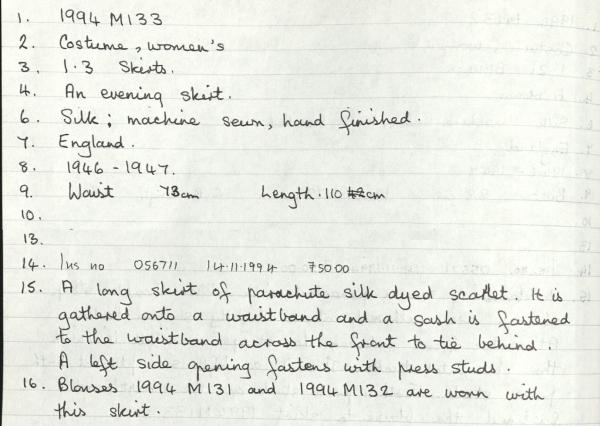 1. 1994 M133
2. Costume, women's
3. 1.3 Skirts.
4. An evening skirt.
6. Silk; machine sewn, hand finished.
7. England.
8. 1946-1947.
9. Waist 73cm Length. 110 cm
10.
13.
14. Ins no 056711 14.11.1994 75000
15. A long skirt of parachute silk dyed scarlet. It is
gathered onto a waistband and a sash is fastened
to the waistband across the front to tie behind.
A left side opening fastens with press studs.
16. Blouses 1994 M131 and 1994 M132 are worn with
this skirt.